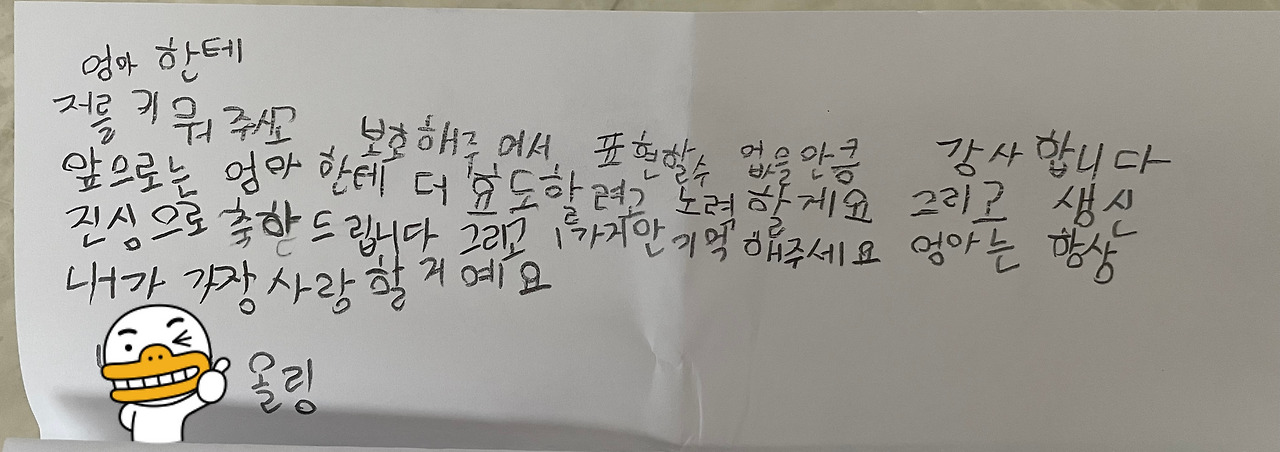 엄마 한테
저를 키 워 주시고 보호해주 어서 표현할수 없을만큼 감사 합니다
앞으로는 엄마 한테 더 효도할려고 노력 할게요 그리고 생신
진심으로 축하 드립니다 그리고 1가지만 기억 해주세요 엄마는 항상
내가 가장 사랑 할 거 예요
올림